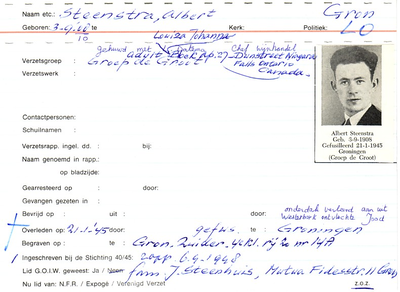 Naam etc.: Steenstra, Albert Gron
Geboren: 3-9-'08 te Kerk: Politiek: LO
10 Louiza Johanna
gehuwd met Chef wijnhandel
Verzetsgroep: Groep de Groot
Verzetswerk: Falls Ontario
Canada.
Contactpersonen:
Schuilnamen:
Verzetsrapp. ingel. dd.: bij:
Naam genoemd in rapp.:
op bladzijde:
Albert Steenstra
Geb. 3-9-1908
Gefusilleerd 21-1-1945
Groningen
(Groep de Groot)
Gearresteerd op : door:
Gevangen gezeten in :
Bevrijd op : uit : door: onderdak verleend aan uit
Westerbork ontvluchte Jood
Overleden op : 21-1-'45 door: gefus. te : Groningen
Begraven op : te : Gron. Zuider.
Ingeschreven bij de Stichting 40/45: rapp. 6-9-1948
Lid G.O.I.W. geweest: Ja / Neen fam. J. Steenhuis, Mutua Fidesstr. 11 Gron
Nu lid van: N.F.R. / Expogé / Verenigd Verzet z.o.z.